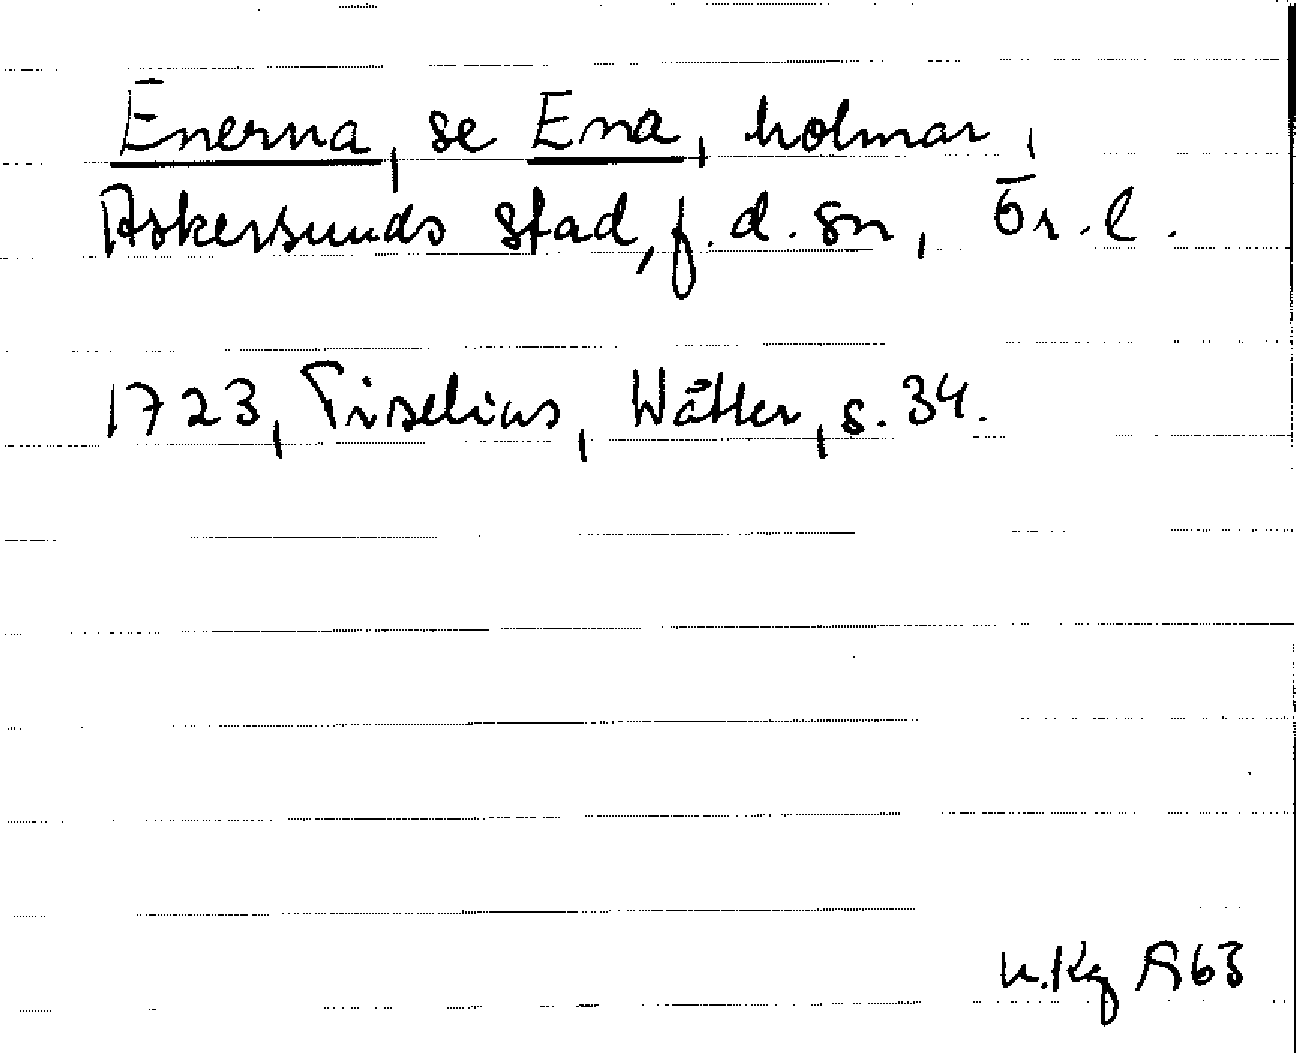 Enerna, se Ena, holmar,
Askersunds stad, f.d. sn, Ör. l.
1723, Tiselius, Wätter, s. 34.
n.Kg A63